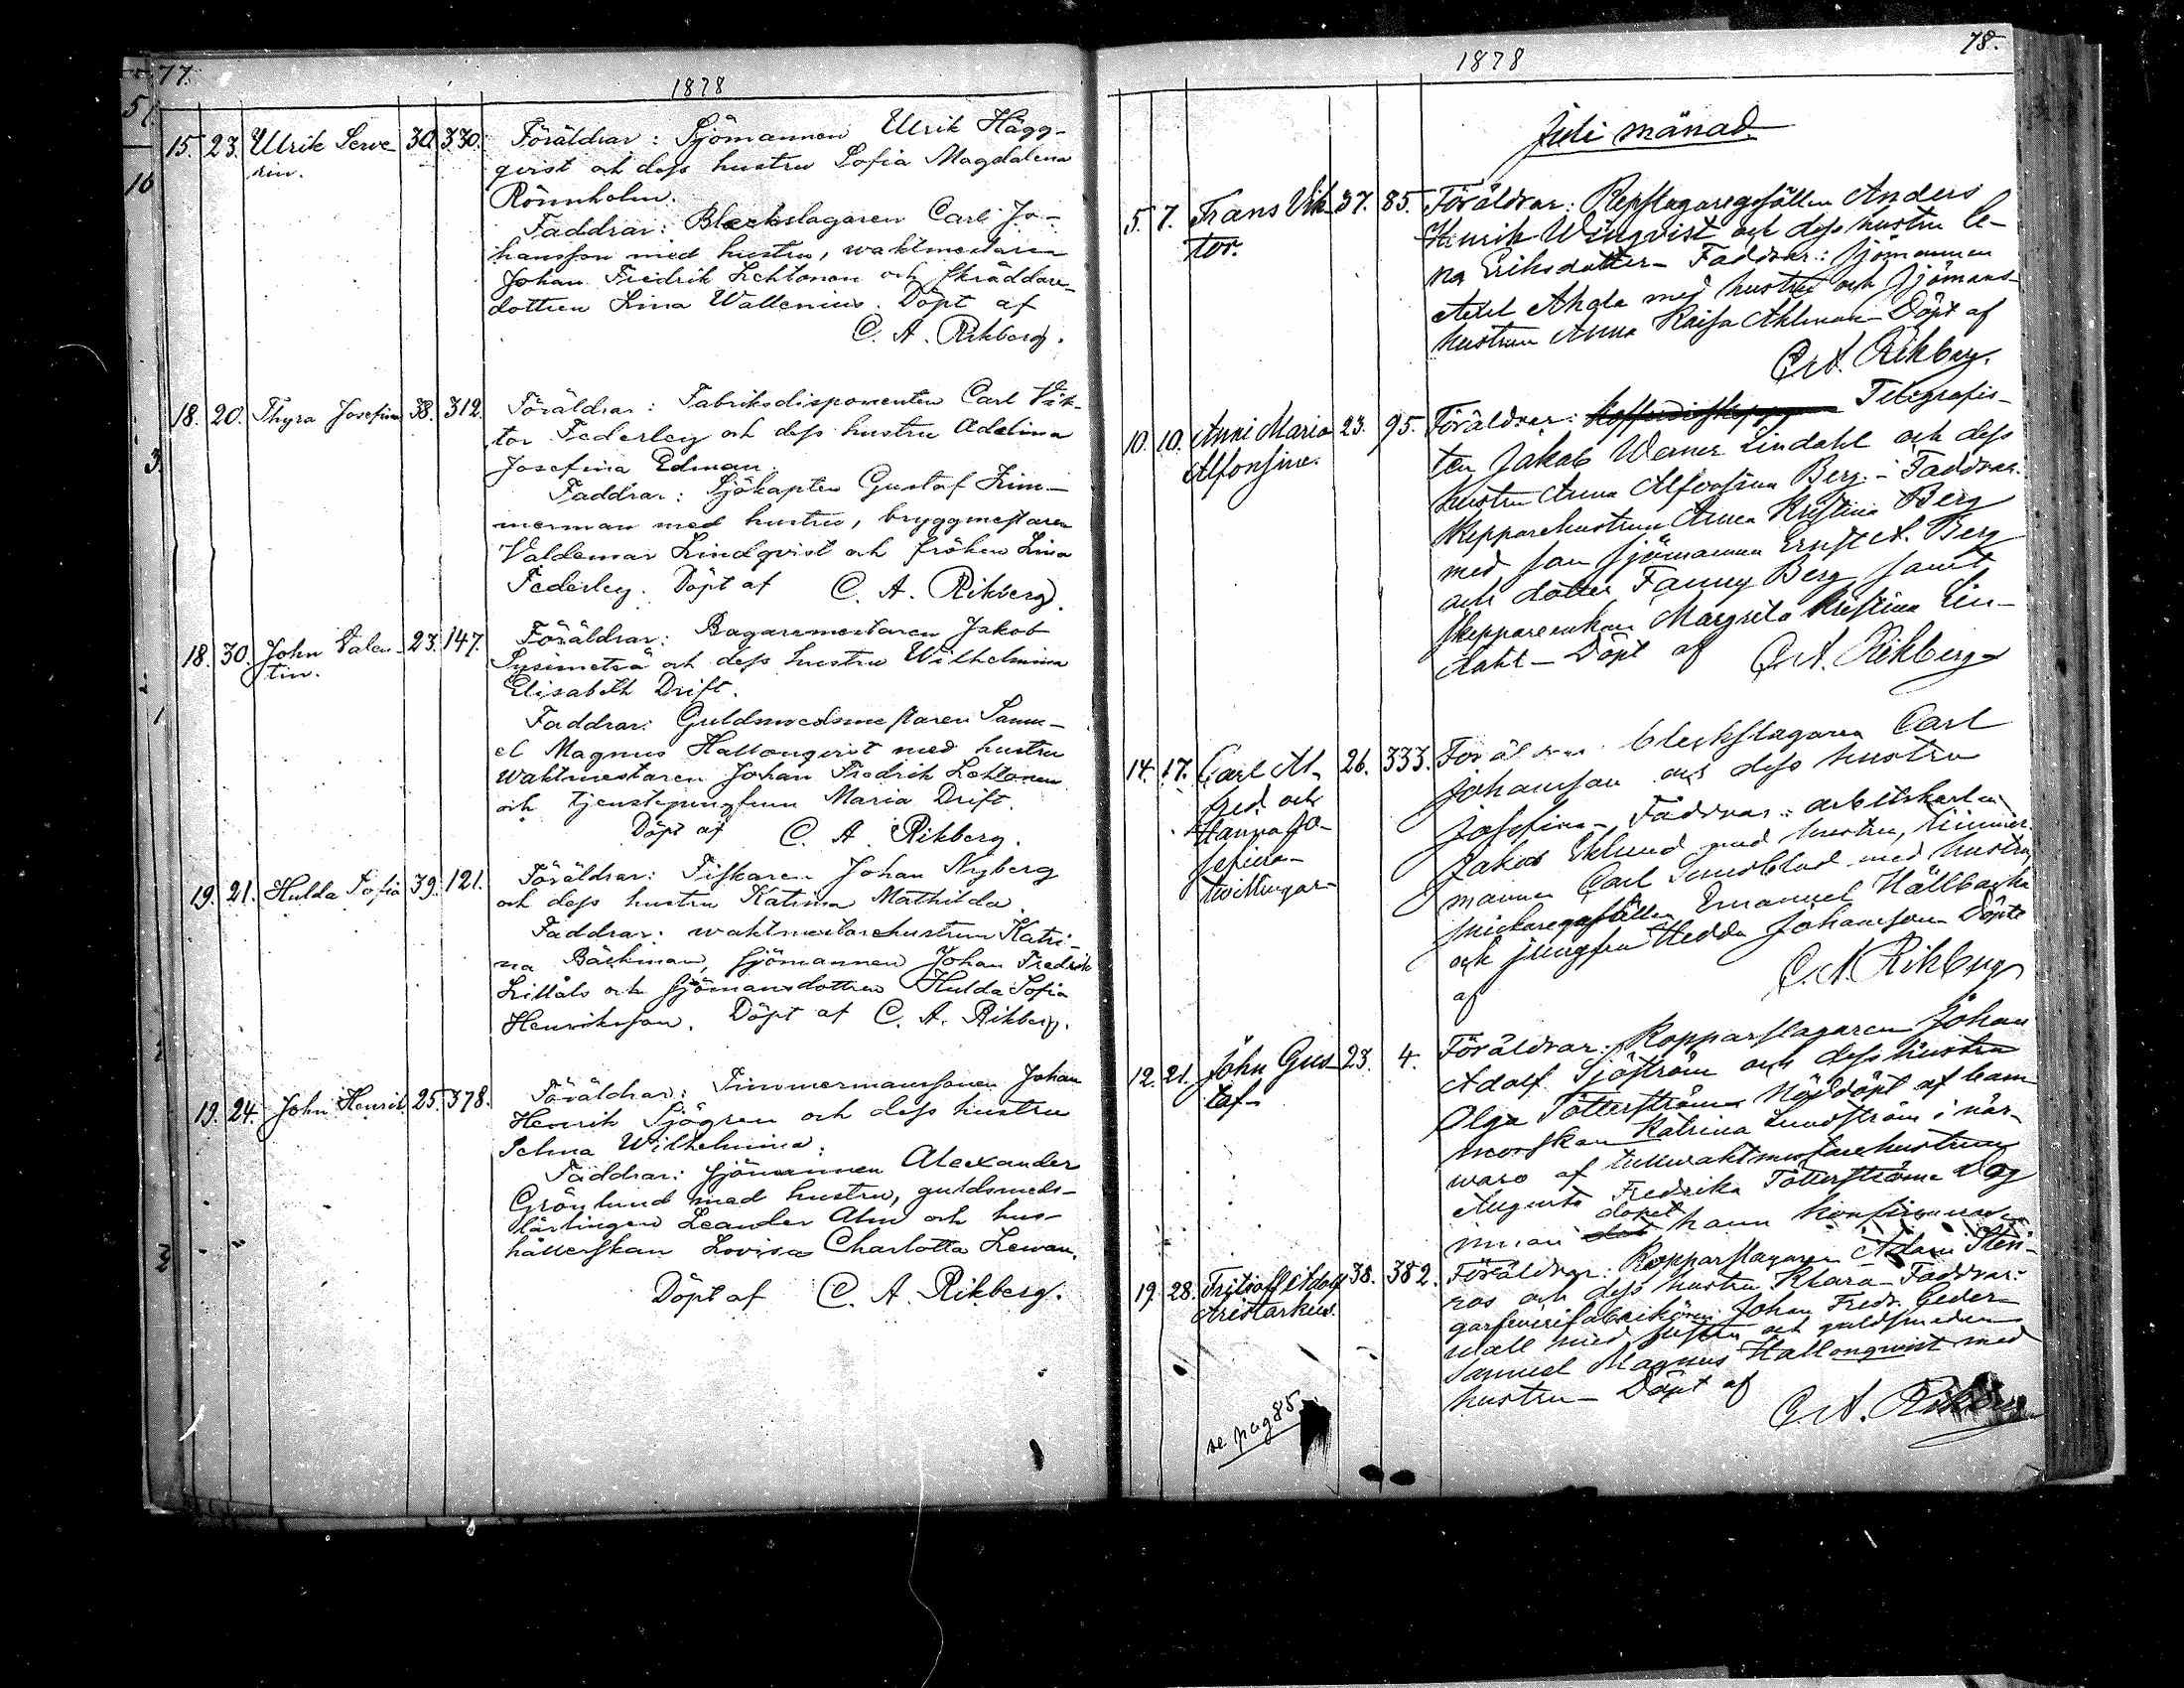 77.
1878
15. 23. Ulrik Seve-
rin. 30. 330. Föräldrar: Sjömannen Ulrik Hägg-
qvist och dess hustru Sofia Magdalena
Rönnholm.
Faddrar: Bleckslagaren Carl Jo-
hansson med hustru, waktmestaren
Johan Fredrik Lehtonen och skräddare-
dottren Lina Wallenius. Döpt af
C. A. Rikberg.
18. 20. Thyra Josefina 38. 312. Föräldrar: Fabriksdisponenten Carl Vik-
tor Federley och dess hustru Adelina
Josefina Edman.
Faddrar: Sjökapten Gustaf Zim-
merman med hustru, bryggmestaren
Valdemar Lindqvist och fröken Lina
Federley. Döpt af C. A. Rikberg.
18. 30. John Valen-
tin. 23. 147. Föräldrar: Bagaremestaren Jakob
Sysimetsä och dess hustru Wilhelmina
Elisabeth Drift.
Faddrar: Guldsmedsmestaren Samu-
el Magnus Hallonqvist med hustru
waktmestaren Johan Fredrik Lehtonen
och tjenstepingfrun Maria Drift.
Döpt af C. A. Rikberg.
19. 21. Hulda Sofia 39. 121. Föräldrar: Fiskaren Johan Nyberg
och dess hustru Katrina Mathilda.
Faddrar: waktmestarehustrun Katri-
na Bäckman, sjömannen Johan Fredrik
Lillåls och sjömansdottren Hulda Sofia
Henriksson. Döpt af C. A. Rikberg.
19. 24. John Henrik 25. 378. Föräldrar: Timmermanssonen Johan
Henrik Sjögren och dess hustru
Selma Wilhelmina.
Faddrar: sjömannen Alexander
Grönlund med hustru, guldsmeds-
lärlingen Leander Alm och hus-
hållerskan Lovisa Charlotta Lewan.
Döpt af C. A. Rikberg.
78.
1878
Juli månad
5. 7. Frans Vik-
tor. 37. 85. Föräldrar: Repslagaregesällen Anders
Henrik Winqvist och dess hustru Le-
na Eriksdotter - Faddrar: sjömannen
Axel Ahola med hustru och sjömans-
hustrun Anna Kaisa Ahlman - Döpt af
C. A. Rikberg.
10. 10. Anni Maria
Alfonsina. 23. 95. Föräldrar: Telegrafis-
ten Jakob Werner Lindahl och dess
hustru Anna Alfonsina Berg. - Faddrar:
Skepparehustrun Anna Kristina Berg
med son sjömannen Ernst A. Berg
och dotter Fanny Berg samt
skeppareenkan Margreta Kristina Lin-
dahl - Döpt af C. A. Rikberg
14. 17. Carl Al-
fred och
Hanna Jo-
sefina -
twillingar - 26. 333. Föräldrar: bleckslagaren Carl
Johansson och dess hustru
Josefina - Faddrar: arbetskarlen
Jakob Eklund med hustru, timmer-
mannen Carl med hustru,
snickaregesällen Emanuel Hällbacka
och jungfru Hedda Johansson - Döpte
af C. A. Rikberg
12. 21. John Gus-
taf - 23. 4. Föräldrar: Kopparslagaren Johan
Adolf Sjöström och dess hustru
Olga Tötterström - Nöddöpt af barn-
morskan Katrina Lundström i när-
waro af tullwaktmestarehustrun
Augusta Fredrika Tötterström - Dog
innan dopet hann konfirmeras.
19. 28. Fritioff Adolf
Aristarkus. 38. 382. Föräldrar: Kopparslagaren Adam Sten-
ros och dess hustru Klara - Faddrar:
garfverifabrikören Johan Fredr. Ceder-
wall med hustru och guldsmeden
Samuel Magnus Hallonqvist med
hustru - Döpt af
C. A. Rikberg
se pag 85.